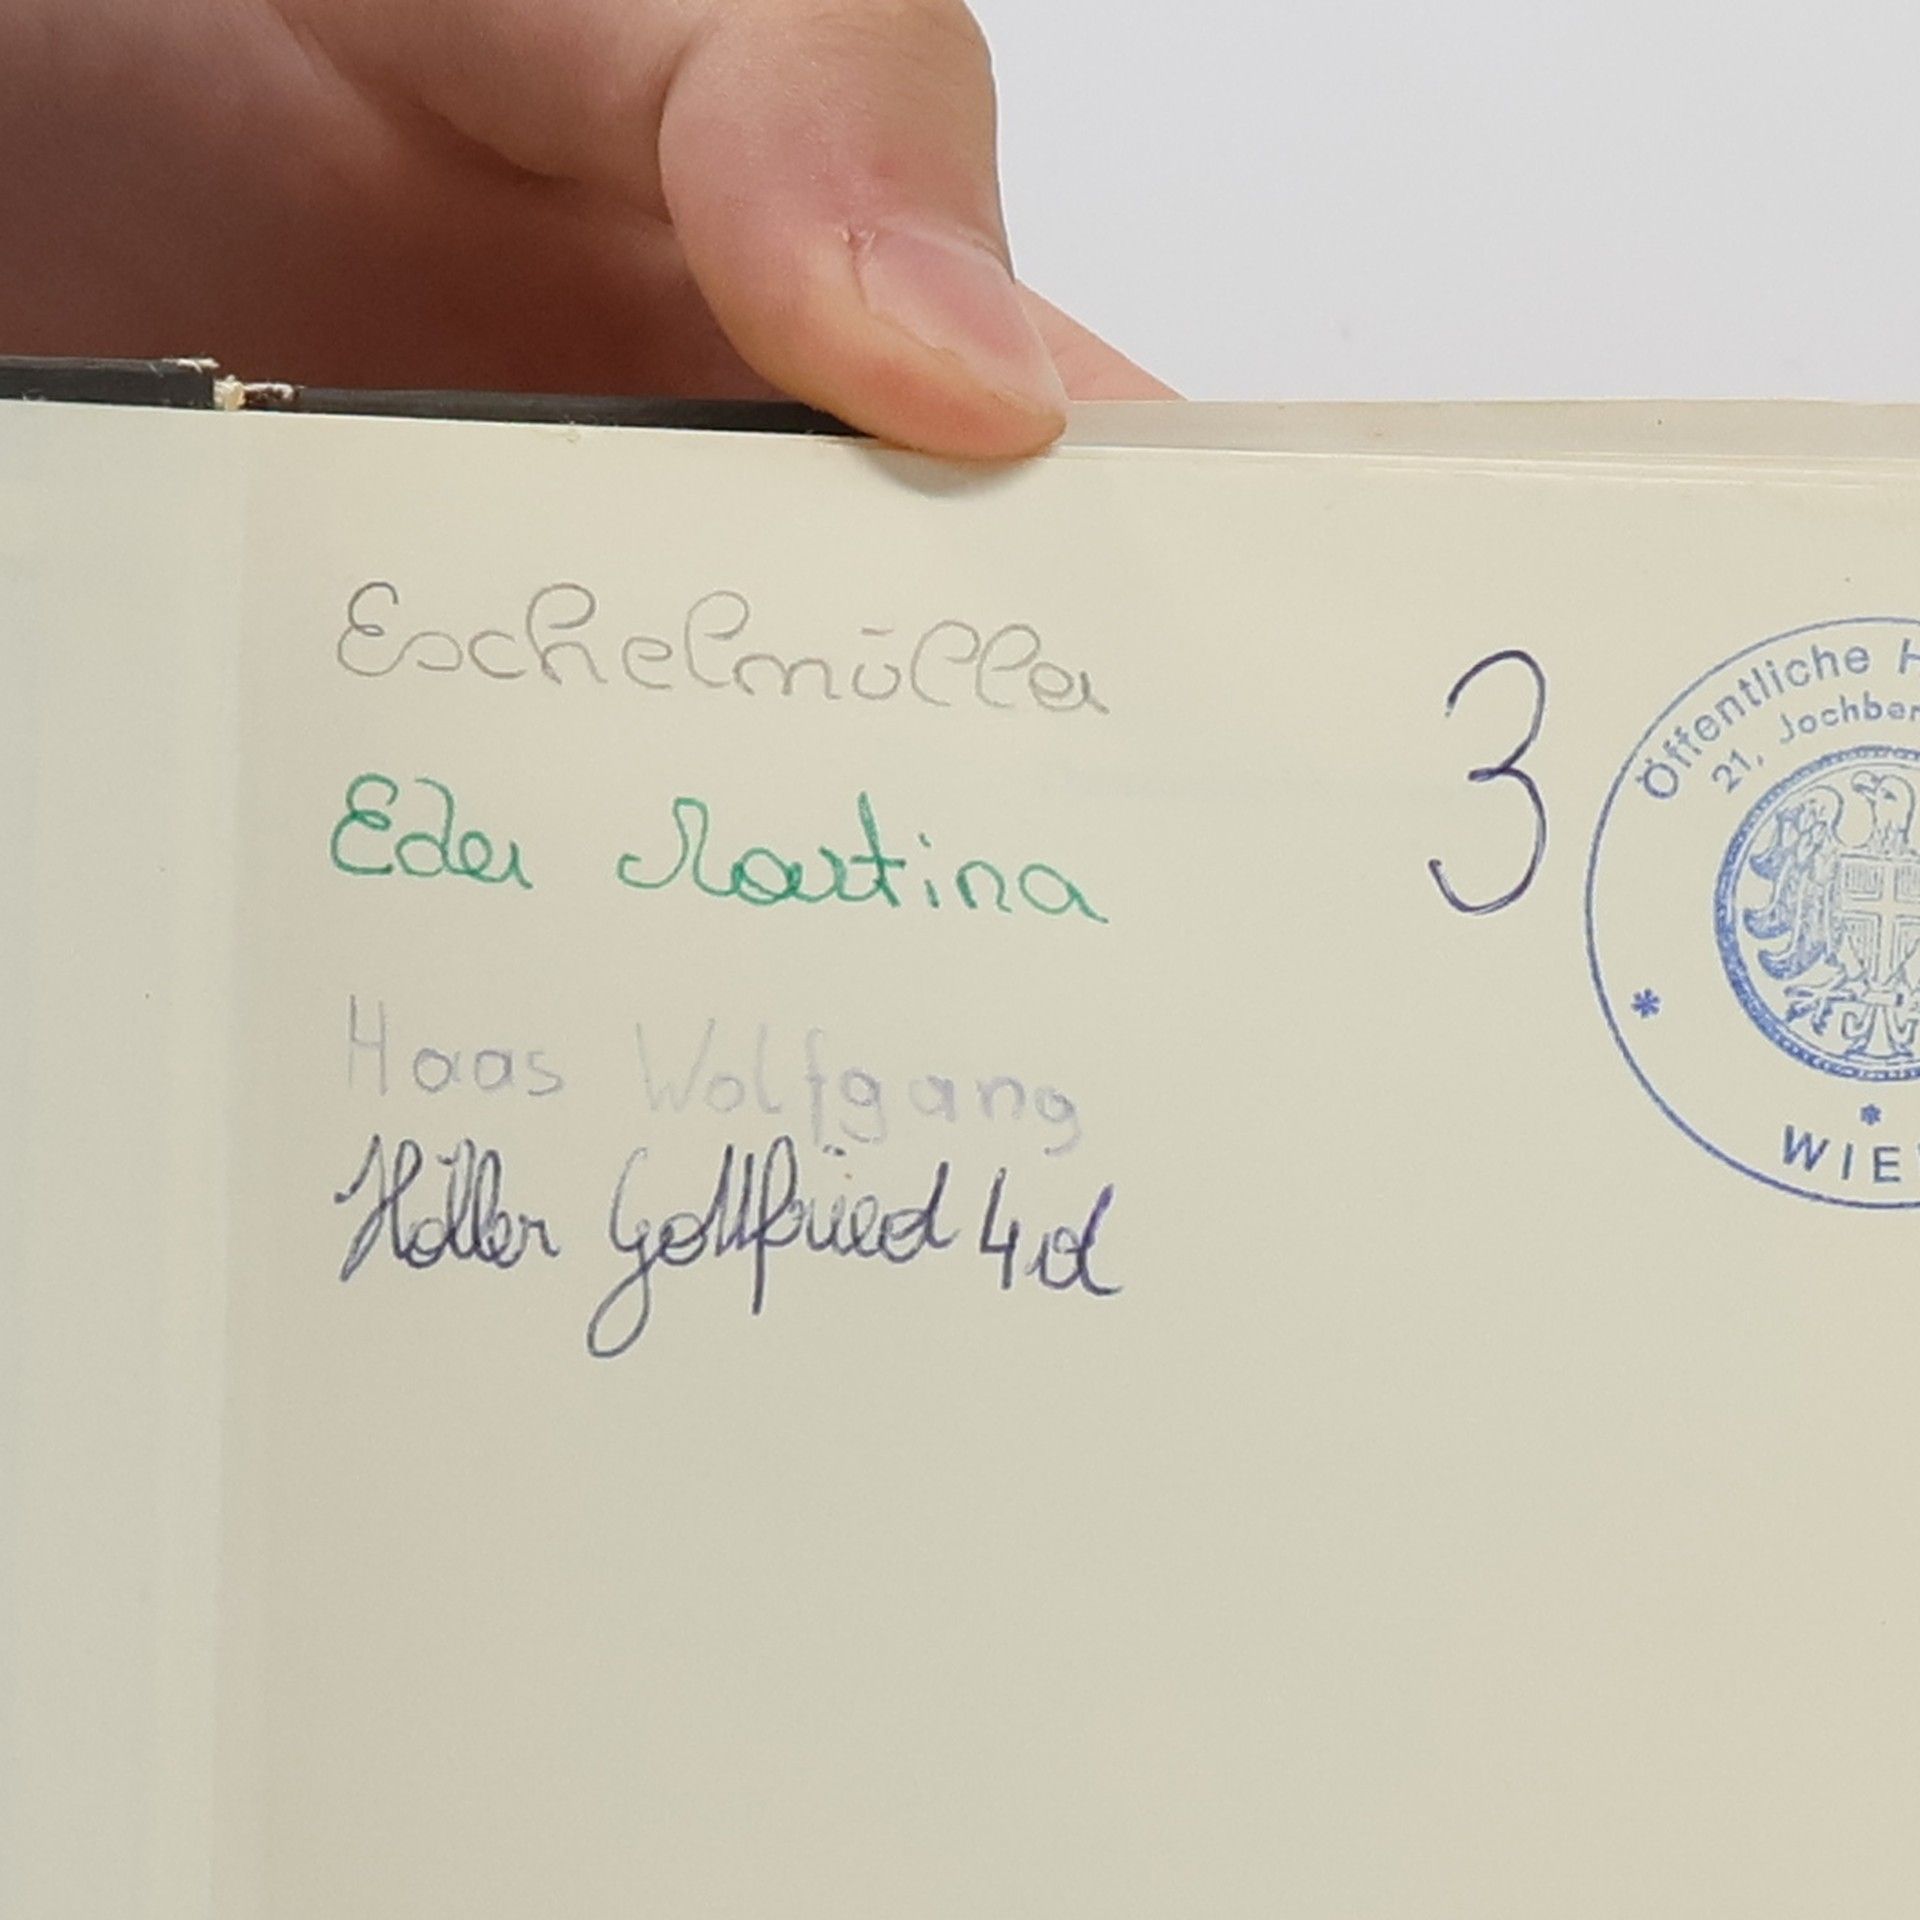 Eschelmüller
Eder Martina
Haas Wolfgang
Höller Gottfried 4d
3
Öffentliche
21, Jochber
* *
WIE